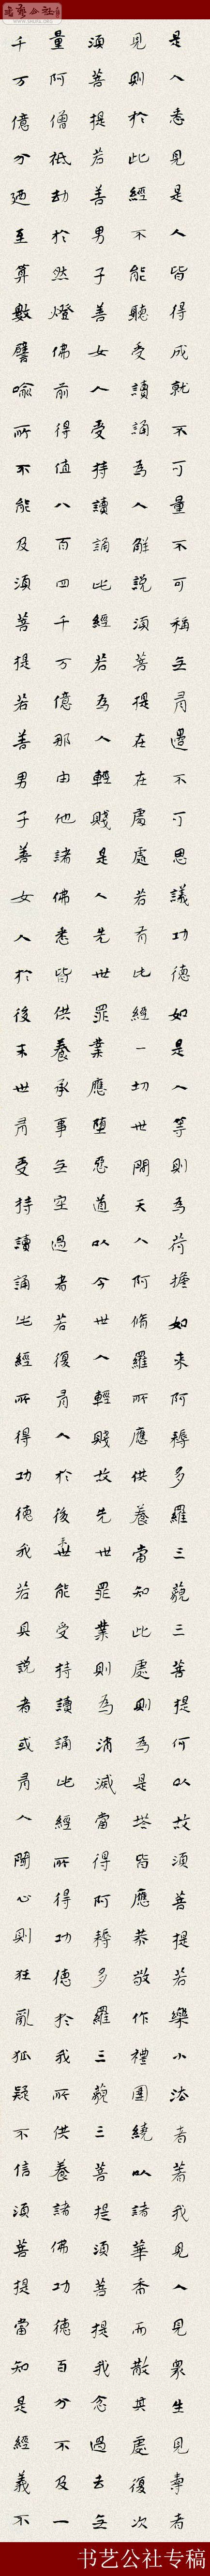 书艺公社
是人悉見是人皆得成就不可量不可稱无有邊不可思議功德如是人等則為荷擔如来阿耨多羅三藐三菩提何以故須菩提若樂小法者著我見人見眾生見壽者
見則於此經不能聽受讀誦為人解說須菩提在在處處若有此經一切世間天人阿脩羅所應供養當知此處則為是塔皆應恭敬作禮圍繞以諸華香而散其處復次
須菩提若善男子善女人受持讀誦此經若為人輕賤是人先世罪業應墮惡道以今世人輕賤故先世罪業則為消滅當得阿耨多羅三藐三菩提須菩提我念過去无
量阿僧祇劫於然燈佛前得值八百四千万億那由他諸佛悉皆供養承事无空過者若復有人於後末世能受持讀誦此經所得功德於我所供養諸佛功德百分不及一
千万億分廼至算數譬喻所不能及須菩提若善男子善女人於後末世有受持讀誦此經所得功德我若具說者或有人聞心則狂亂狐疑不信須菩提當知是經義不
书艺公社专稿